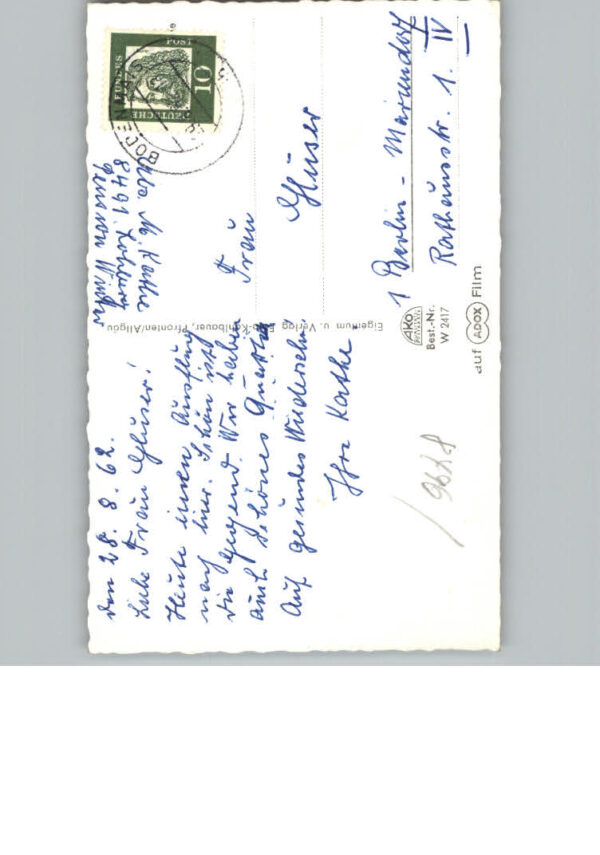 den 28. 8. 62.
Liebe Frau Gluser!
Heute einen Ausflug
nach hier. Schön ist
die Gegend. Wir haben
auch schönes Quartier
Auf gesundes Wiedersehn.
Ihre Kathe
8491
Pension
DEUTSCHE
BUNDES
POST
10
BOGEN
Frau
Gluser
1 Berlin - Mariendorf
Rathausstr. 1. IV
Eigentum u. Verlag Kohlbauer, Pfronten/Allgäu
AKO
Best.-Nr.
W 2417
auf ADOX Film